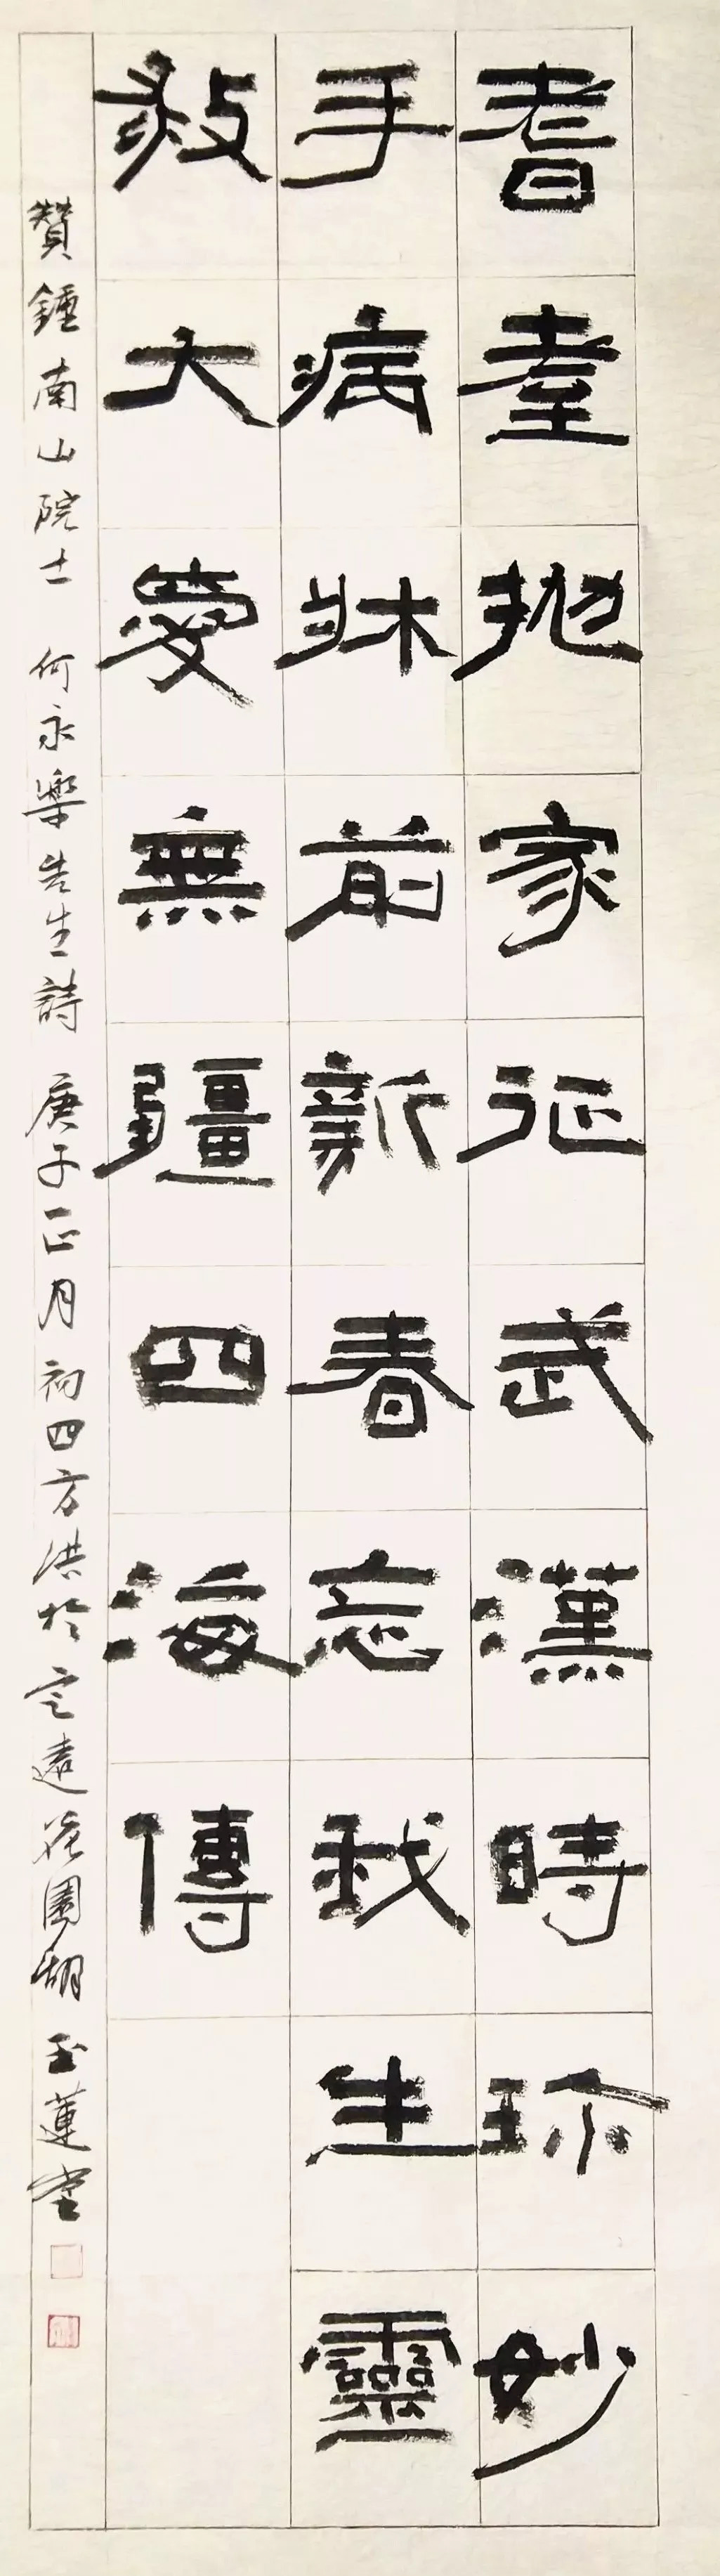 耆耋抛家征武漢時珎妙
手病牀前新春忘我生靈
救大愛無疆四海傳
贊鍾南山院士 何永樂先生詩 庚子正月初四方洪於定遠花園湖 玉蓮堂